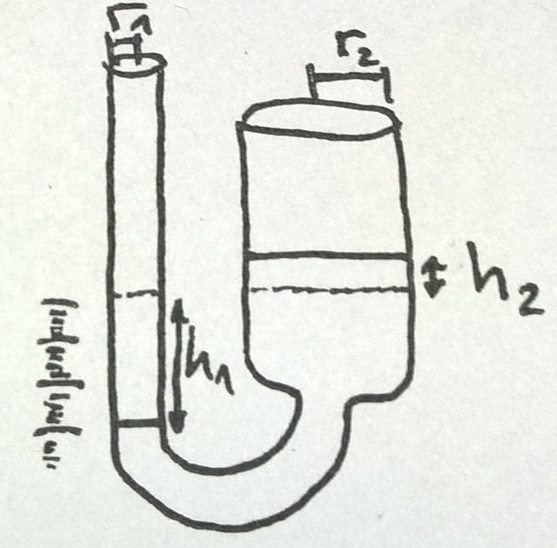 r₁
r₂
h₂
h₁